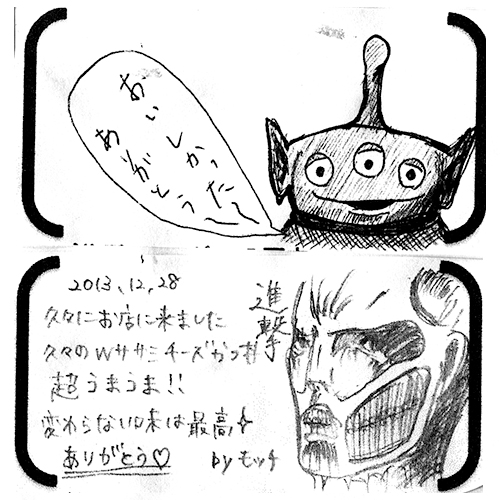 おいしかったー
ありがとうー
2013.12.28
久々にお店に来ました
久々のWササミチーズかつ村
超うまうま!!
変わらない味は最高
ありがとう♡
byモッチ
進撃